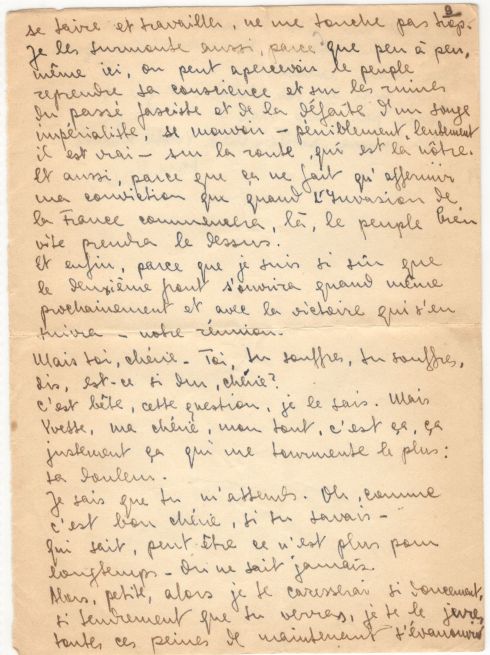 9
se taire et travailler, ne me touche pas trop.
Je les surmonte aussi, parce que peu à peu,
même ici, on peut apercevoir le peuple
reprendre sa conscience et sur les ruines
du passé fasciste et de la défaite d'un songe
impérialiste, se mouvoir – péniblement, lentement
il est vrai – sur la route, qui est la nôtre.
Et aussi, parce que ça ne fait qu'affermir
ma conviction que quand l'Invasion de
la France commencera, là, le peuple bien
vite prendra le dessus.
Et enfin, parce que je suis si sûr que
le deuxième front s'ouvrira quand même
prochainement et avec la victoire qui s'en
suivra – notre réunion.
Mais toi, chérie – Toi, tu souffres, tu souffres,
dis, est-ce si dur, chérie?
C'est bête, cette question, je le sais. Mais
Yvette, ma chérie, mon tout, c'est ça, ça
justement ça qui me tourmente le plus:
ta douleur.
Je sais que tu m'attends. Oh, comme
c'est bon chérie, si tu savais –
qui sait, peut être ce n'est plus pour
longtemps – On ne sait jamais.
Alors, petite, alors je te caresserai si doucement,
si tendrement que tu verras, je te le jure,
toutes ces peines de maintenant s'évanouiront